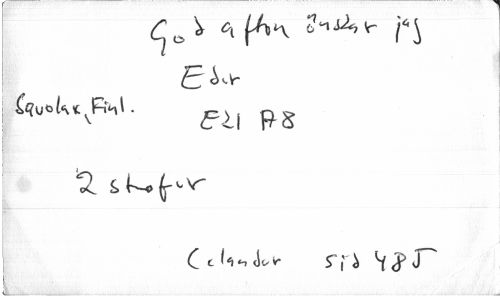 God afton önskar jag
Eder
Savolax, Finl.
E21 A8
2 strofer
Celander sid 485